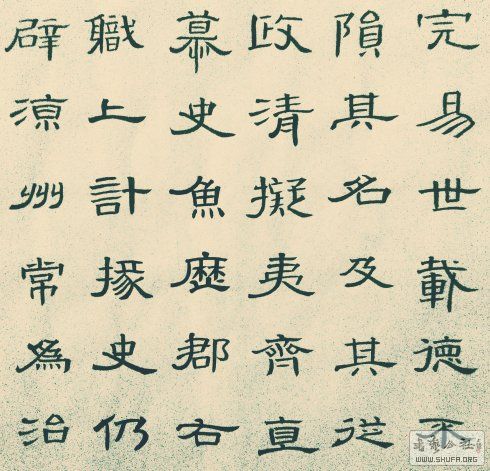 完易世載德不
隕其名及其從
政清擬夷齊直
慕史魚歷郡右
職上計掾史仍
辟涼州常為治
WWW.SHUFA.ORG